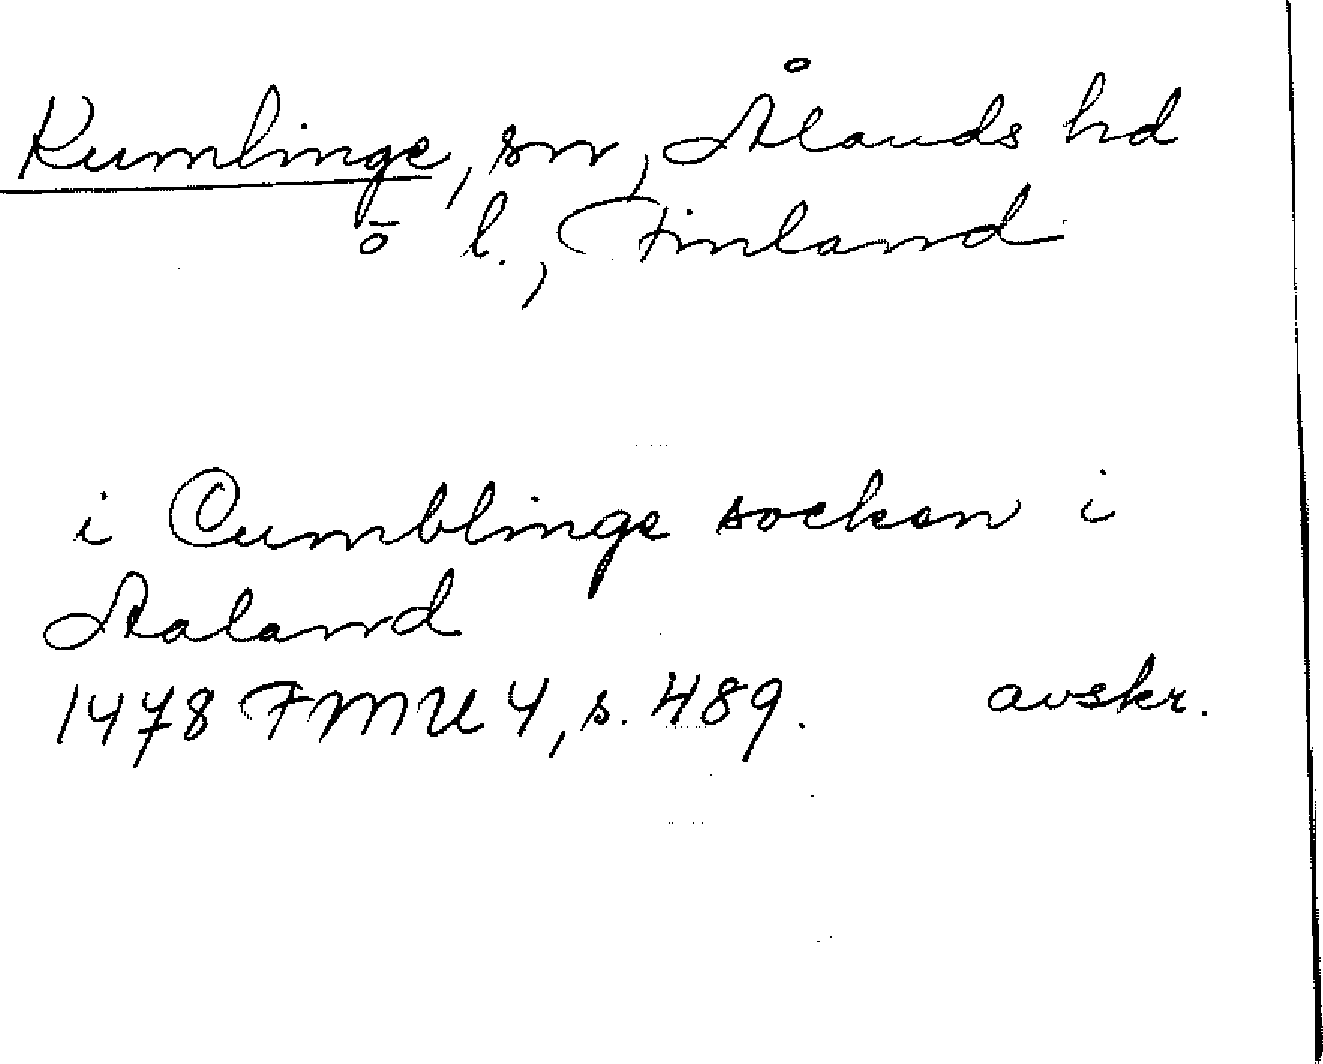 Kumlinge, sn, Ålands hd
ō l., Finland
i Cumblinge socken i
Aaland
1478 FMU 4, s. 489. avskr.